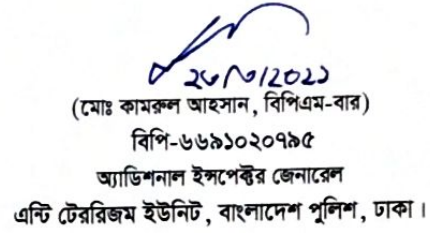 (মোঃ কামরুল আহসান, বিপিএম-বার)
বিপি-৬৬৯১০২০৭৯৫
অ্যাডিশনাল ইন্সপেক্টর জেনারেল
এন্টি টেররিজম ইউনিট, বাংলাদেশ পুলিশ, ঢাকা।